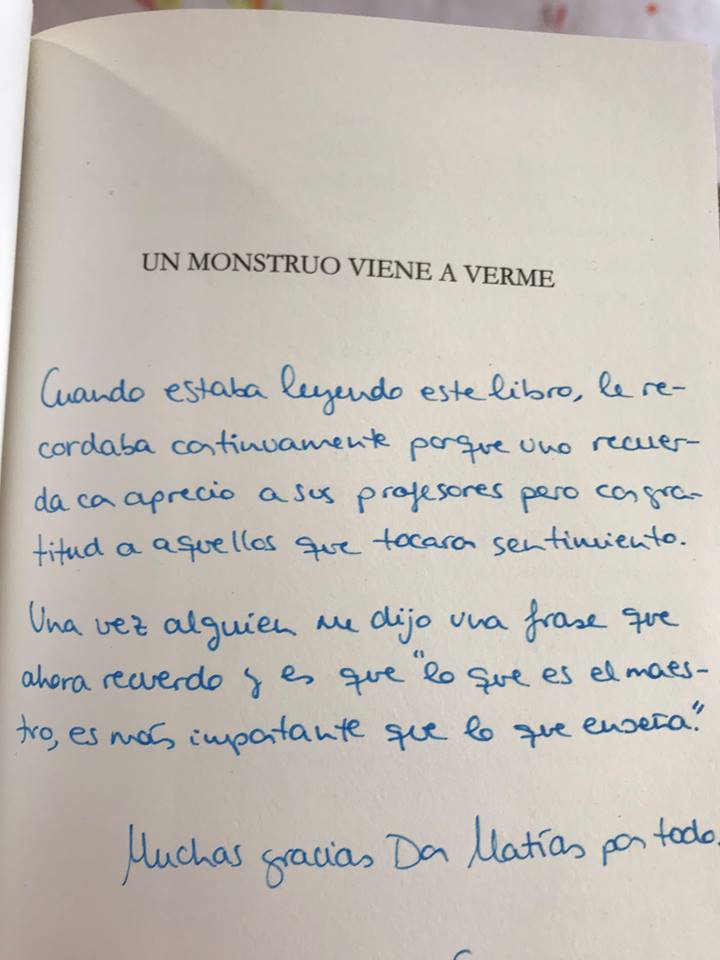 UN MONSTRUO VIENE A VERME
Cuando estaba leyendo este libro, le re-
cordaba continuamente porque uno recuer-
da con aprecio a sus profesores pero con gra-
titud a aquellos que tocaron sentimiento.
Una vez alguien me dijo una frase que
ahora recuerdo y es que "lo que es el maes-
tro, es más importante que lo que enseña."
Muchas gracias Don Matías por todo.